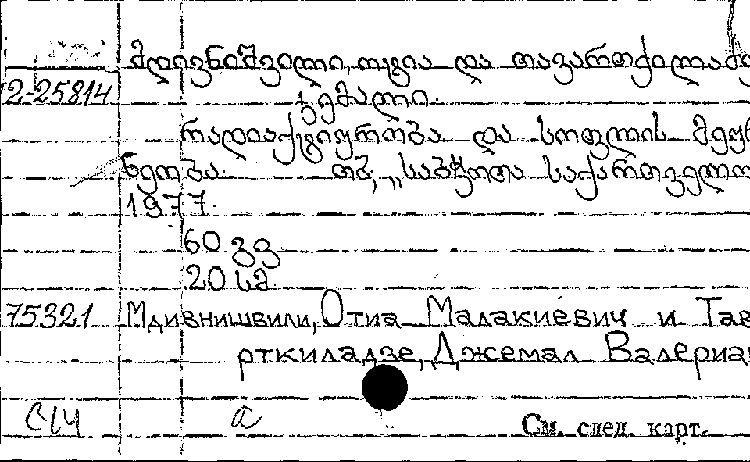 მდივნიშვილი, ოტია და თავართქილაძე
2-25814 ჯემალი.
რადიაქტიურობა და სოფლის მეურ
ნეობა. თბ., „საბჭოთა საქართველო
1977.
60 გვ
20 სმ.
75321 Мдивнишвили, Отиа Малакиевич и Тав
рткиладзе, Джемал Валериан
См. след. карт.